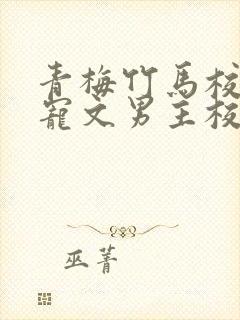 青梅竹馬校
寵文男主校
巫菁